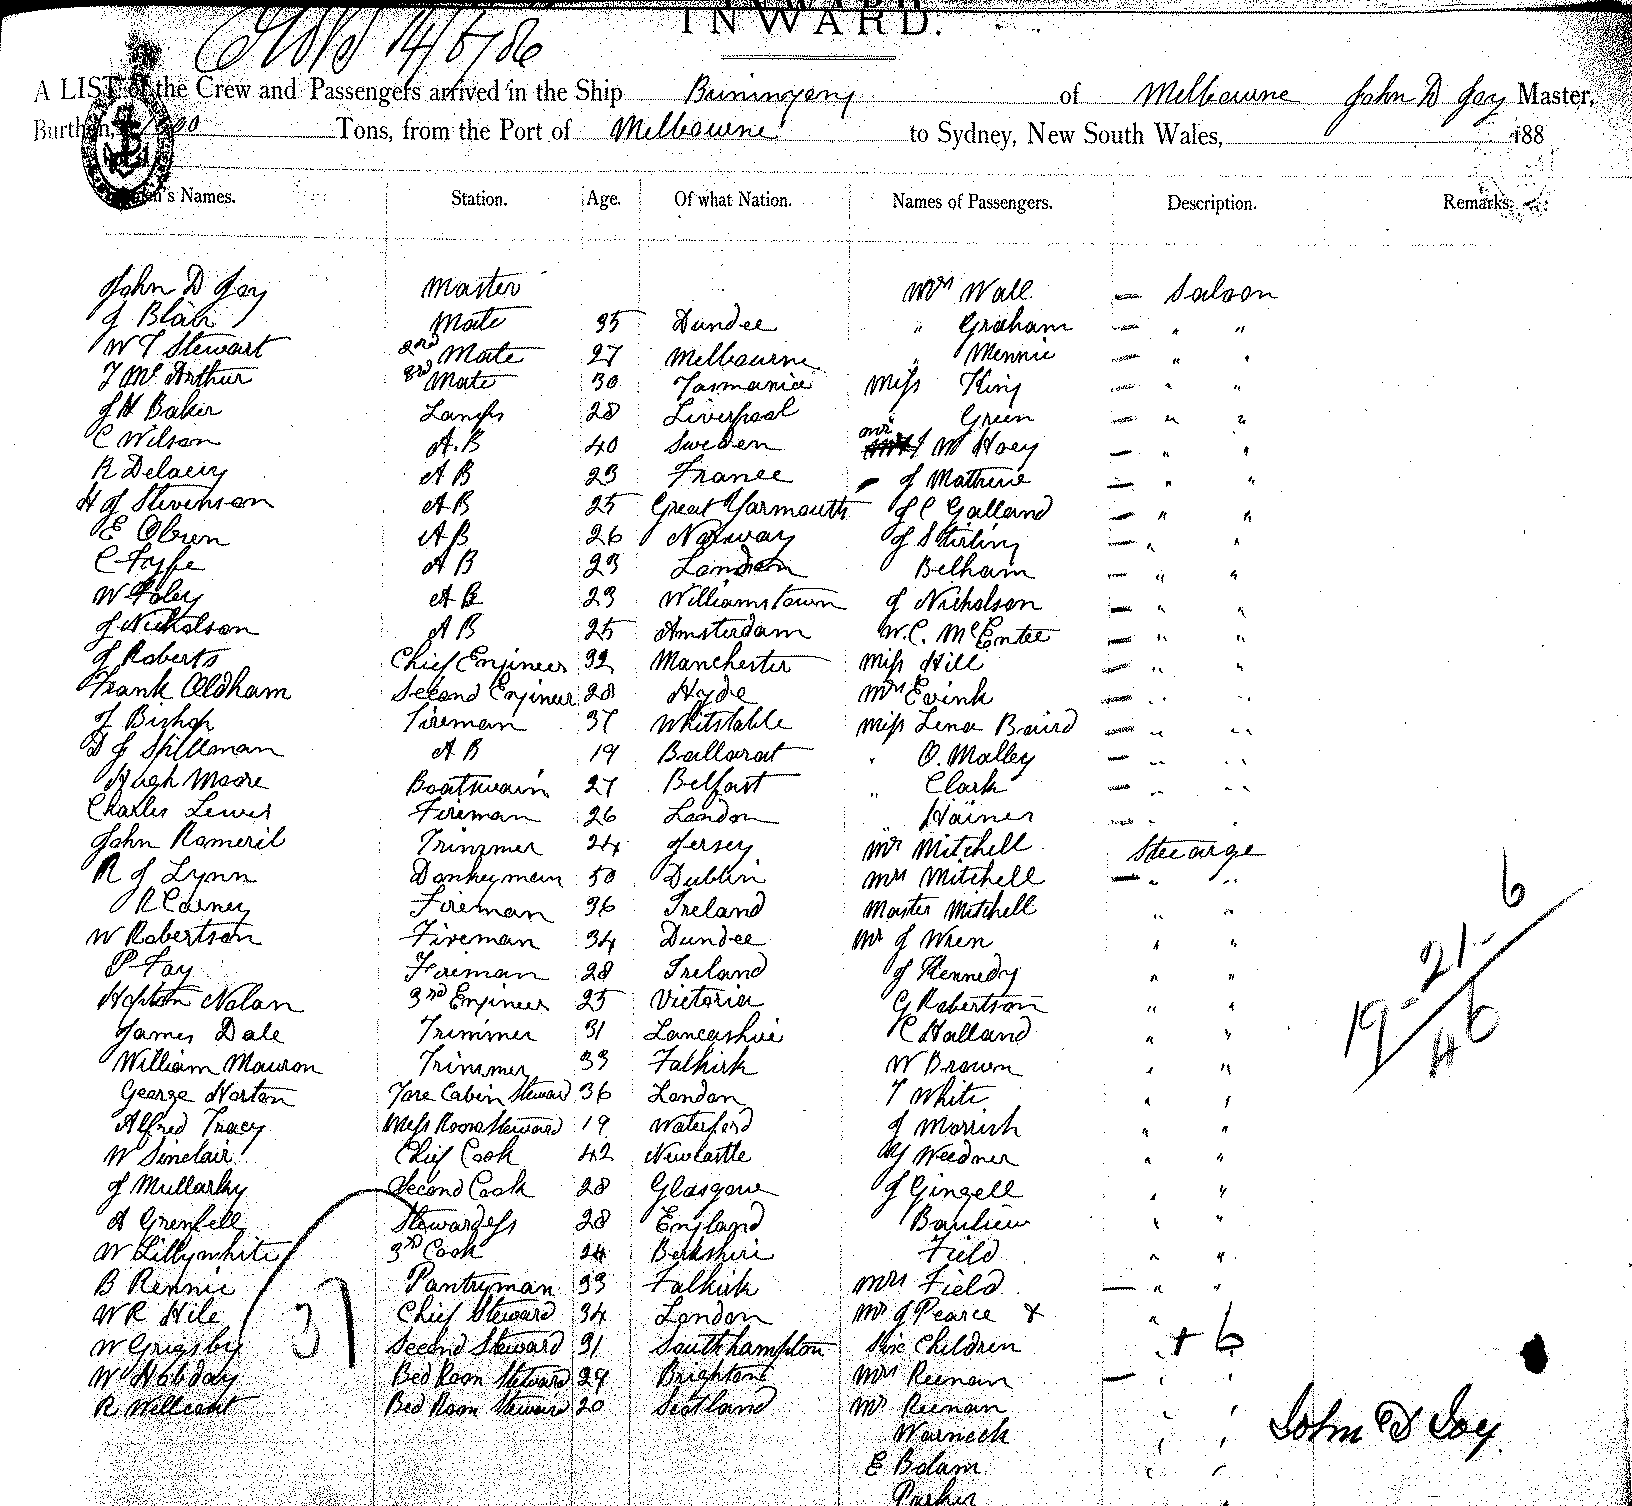 14/5/86
INWARD.
A LIST of the Crew and Passengers arrived in the Ship Buninyong of Melbourne John D Joy Master,
Burthen, Tons, from the Port of Melbourne to Sydney, New South Wales, 188
Men's Names. Station. Age. Of what Nation. Names of Passengers. Description. Remarks.
John D Joy Master Mrs Wall — Saloon
J Blair Mate 35 Dundee " Graham — " "
W T Stewart 2nd Mate 27 Melbourne " Mennie — " "
T McArthur 3rd Mate 30 Tasmania Miss King — " "
J H Baker Lamps 28 Liverpool " Green — " "
C Wilson A.B 40 Sweden Mr W Hoey — " "
R Delaciy A B 23 France J Mathine — " "
H J Stevenson A B 25 Great Yarmouth J C Galland — " "
E Olsen A B 26 Norway J Stirling — " "
C Fyffe A B 23 London Belham — " "
W Foley A B 23 Williamstown J Nicholson — " "
J Nicholson A B 25 Amsterdam W.C. McEntee — " "
J Roberts Chief Engineer 32 Manchester Miss Hill — " "
Frank Oldham Second Engineer 28 Hyde Mrs Evink — " "
J Bishop Fireman 37 Whitstable Miss Lena Baird — " "
D J Spillman A B 19 Ballarat " O. Malley — " "
Hugh Moore Boatswain 27 Belfast " Clark — " "
Charles Lewis Fireman 26 London Hainer — " "
John Rameril Trimmer 24 Jersey Mr Mitchell Steerage
R J Lynn Donkeyman 50 Dublin Mrs Mitchell — " "
R Carney Fireman 36 Ireland Master Mitchell " "
W Robertson Fireman 34 Dundee Mr J Wren " "
P Fay Fireman 28 Ireland J Kennedy " "
Hopton Nolan 3rd Engineer 25 Victoria G Robertson " "
James Dale Trimmer 31 Lancashire C Holland " "
William Mauron Trimmer 33 Falkirk W Brown " "
George Norton Fore Cabin Steward 36 London T White " "
Alfred Tracy Mess Room Steward 19 Waterford J Morrish " "
W Sinclair Chief Cook 42 Newcastle Weedner " "
J Mullarky Second Cook 28 Glasgow J Gingell " "
A Grenfell Stewardess 28 England " "
W Lillywhite 3rd Cook 24 Berkshire Field " "
B Rennie Pantryman 33 Falkirk Mrs Field — " "
W R Hile Chief Steward 34 London Mr J Pearce + "
W Grigsby Second Steward 31 Southhampton Six Children " + 6
W Hobday Bed Room Steward 29 Brighton Mrs Reenan — " "
R Willcout Bed Room Steward 20 Scotland Mr Reenan " "
Warneck " "
E Bolam " "
Parker "
37
19 - 21 - 6
46
John D Joy